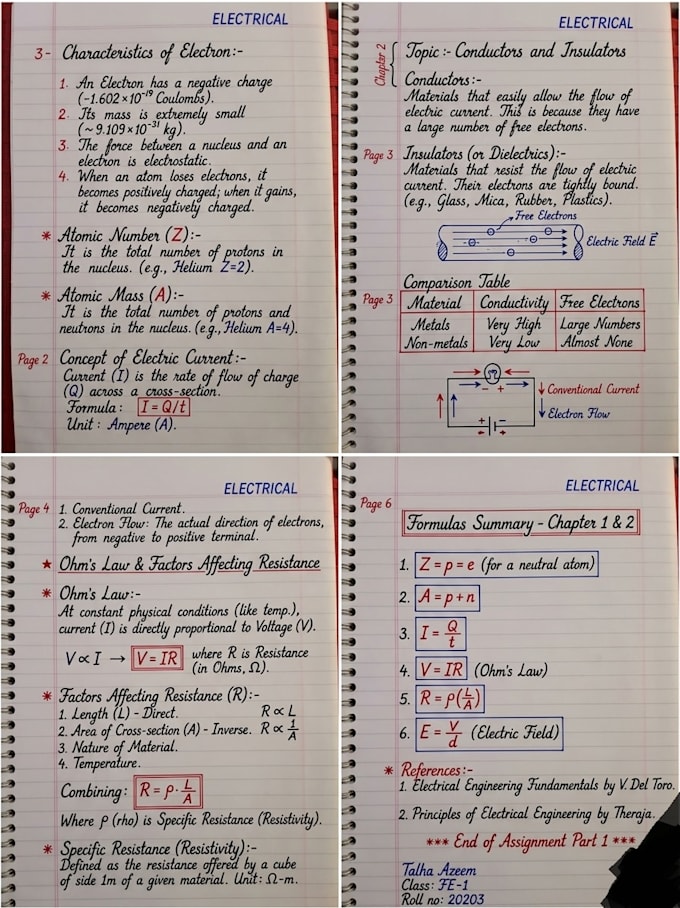 ELECTRICAL
3- Characteristics of Electron:-
1. An Electron has a negative charge
(-1.602×10⁻¹⁹ Coulombs).
2. Its mass is extremely small
(~9.109×10⁻³¹ kg).
3. The force between a nucleus and an
electron is electrostatic.
4. When an atom loses electrons, it
becomes positively charged; when it gains,
it becomes negatively charged.
* Atomic Number (Z):-
It is the total number of protons in
the nucleus. (e.g., Helium Z=2).
* Atomic Mass (A):-
It is the total number of protons and
neutrons in the nucleus. (e.g., Helium A=4).
Page 2 Concept of Electric Current:-
Current (I) is the rate of flow of charge
(Q) across a cross-section.
Formula: I = Q/t
Unit: Ampere (A).
ELECTRICAL
Chapter 2
Topic:- Conductors and Insulators
Conductors:-
Materials that easily allow the flow of
electric current. This is because they have
a large number of free electrons.
Page 3 Insulators (or Dielectrics):-
Materials that resist the flow of electric
current. Their electrons are tightly bound.
(e.g., Glass, Mica, Rubber, Plastics).
Free Electrons
Electric Field E⃗
Comparison Table
Page 3 Material Conductivity Free Electrons
Metals Very High Large Numbers
Non-metals Very Low Almost None
- +
Conventional Current
Electron Flow
+ -
ELECTRICAL
Page 4 1. Conventional Current.
2. Electron Flow: The actual direction of electrons,
from negative to positive terminal.
★ Ohm's Law & Factors Affecting Resistance
* Ohm's Law:-
At constant physical conditions (like temp.),
current (I) is directly proportional to Voltage (V).
V ∝ I → V = IR where R is Resistance
(in Ohms, Ω).
* Factors Affecting Resistance (R):-
1. Length (L) - Direct. R ∝ L
2. Area of Cross-section (A) - Inverse. R ∝ 1/A
3. Nature of Material.
4. Temperature.
Combining: R = ρ · L/A
Where ρ (rho) is Specific Resistance (Resistivity).
* Specific Resistance (Resistivity):-
Defined as the resistance offered by a cube
of side 1m of a given material. Unit: Ω-m.
ELECTRICAL
Page 6
Formulas Summary - Chapter 1 & 2
1. Z = p = e (for a neutral atom)
2. A = p + n
3. I = Q/t
4. V = IR (Ohm's Law)
5. R = ρ(L/A)
6. E = V/d (Electric Field)
* References:-
1. Electrical Engineering Fundamentals by V. Del Toro.
2. Principles of Electrical Engineering by Theraja.
*** End of Assignment Part 1 ***
Talha Azeem
Class: FE-1
Roll no: 20203